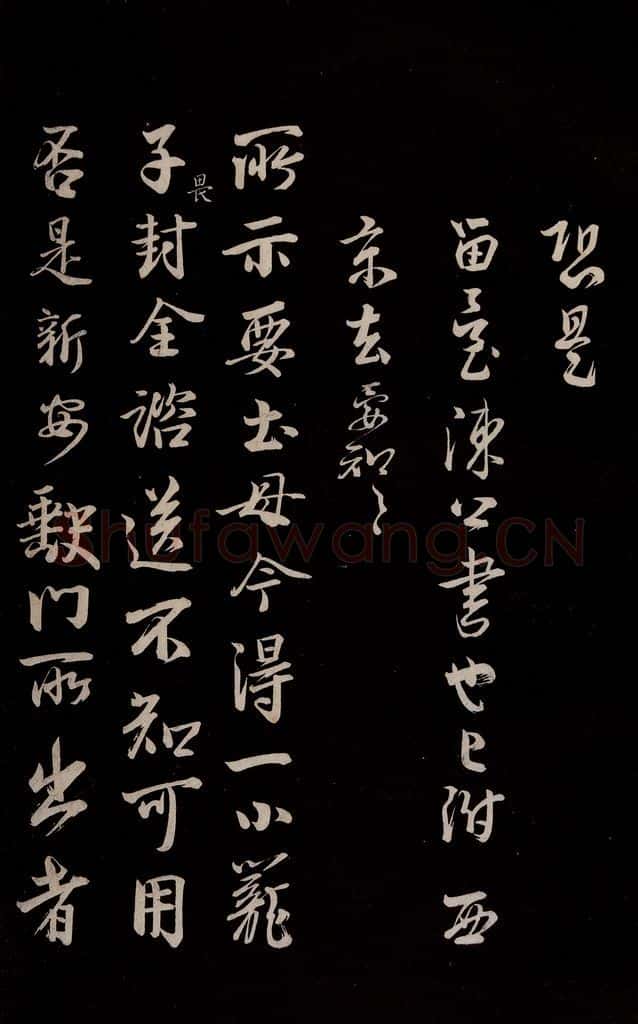 恐是
留臺陳公書也已附西
京去要知々
所示要土母今得一小籠
子封全諮送不知可用
畏
否是新安門所出者
shufawang.CN